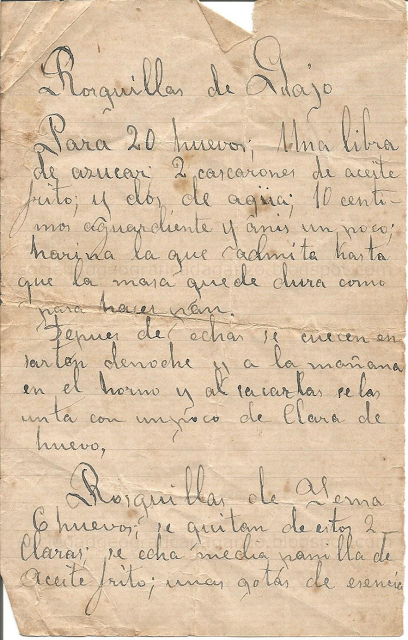 Rosquillas de Puajo
Para 20 huevos; Una libra
de azucar 2 cascarones de aceite
frito; y dos de agua; 10 centi-
mos aguardiente y anis un poco;
harina la que admita hasta
que la masa quede dura como
para hacer pan.
Depues de echas se cuecen en
sarten denoche y a la mañana
en el horno y al sacarlas se las
unta con un poco de Clara de
huevo,
Rosquillas de Yema
6 huevos; se quitan de estos 2
Claras; se echa media panilla de
aceite frito; unas gotas de esencia